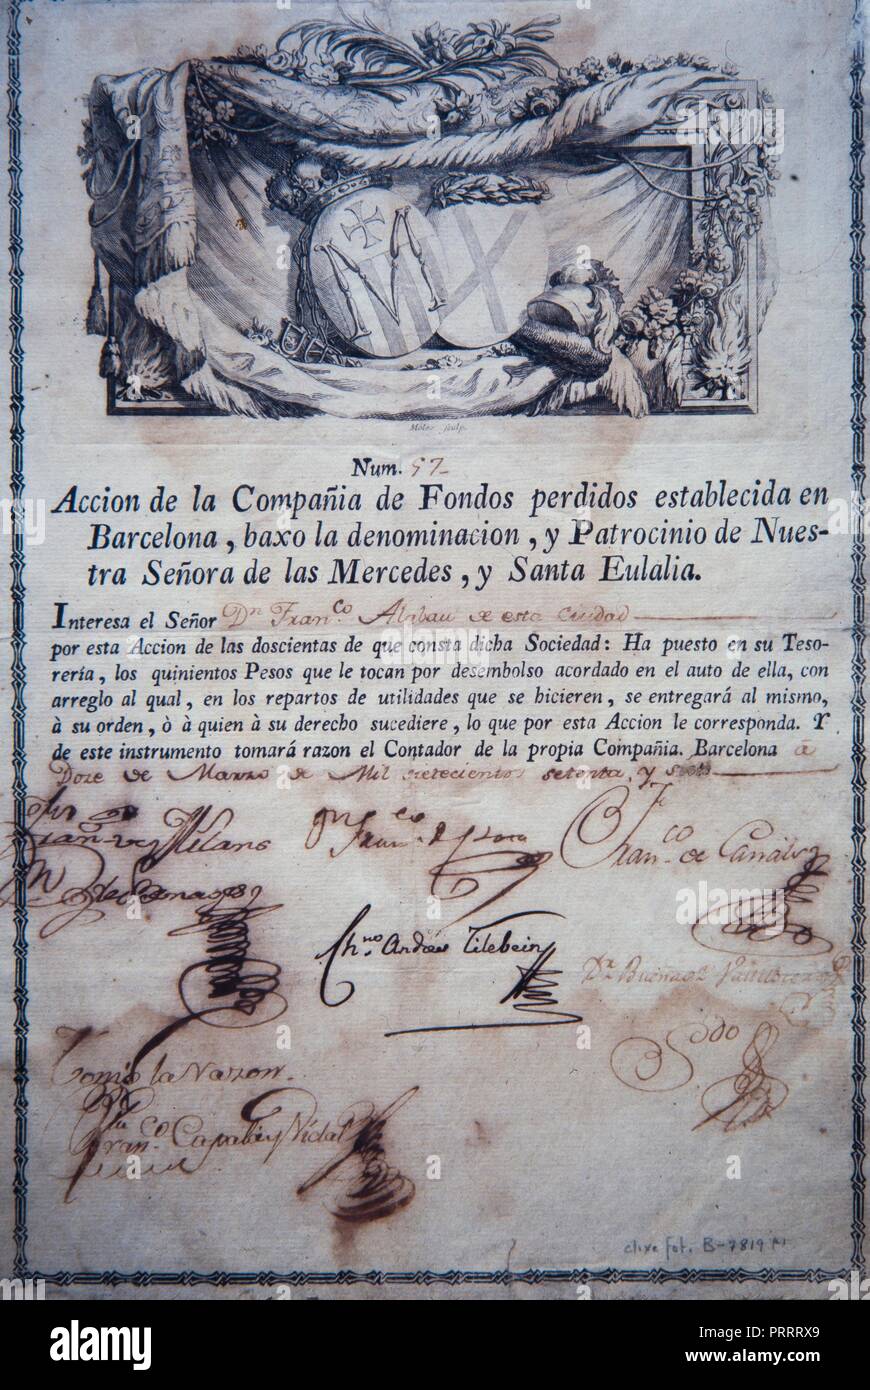 Môles sculp.
Num. 57
Accion de la Compañia de Fondos perdidos establecida en
Barcelona, baxo la denominacion, y Patrocinio de Nues-
tra Señora de las Mercedes, y Santa Eulalia.
Interesa el Señor Dn Franco. Alabau de esta Ciudad
por esta Accion de las doscientas de que consta dicha Sociedad: Ha puesto en su Teso-
rería, los quinientos Pesos que le tocan por desembolso acordado en el auto de ella, con
arreglo al qual, en los repartos de utilidades que se hicieren, se entregará al mismo,
à su orden, ò à quien à su derecho sucediere, lo que por esta Accion le corresponda. Y
de este instrumento tomará razon el Contador de la propia Compañia. Barcelona á
Doze de Marzo de Mil setecientos setenta, y
Milans
Franco. de Canals
Chno. Andrés Tilebein
Tomé la Razon.
Franco. Vidal
clixe fot. B-7819
alamy
alamy
Image ID: PRRRX9
www.alamy.com